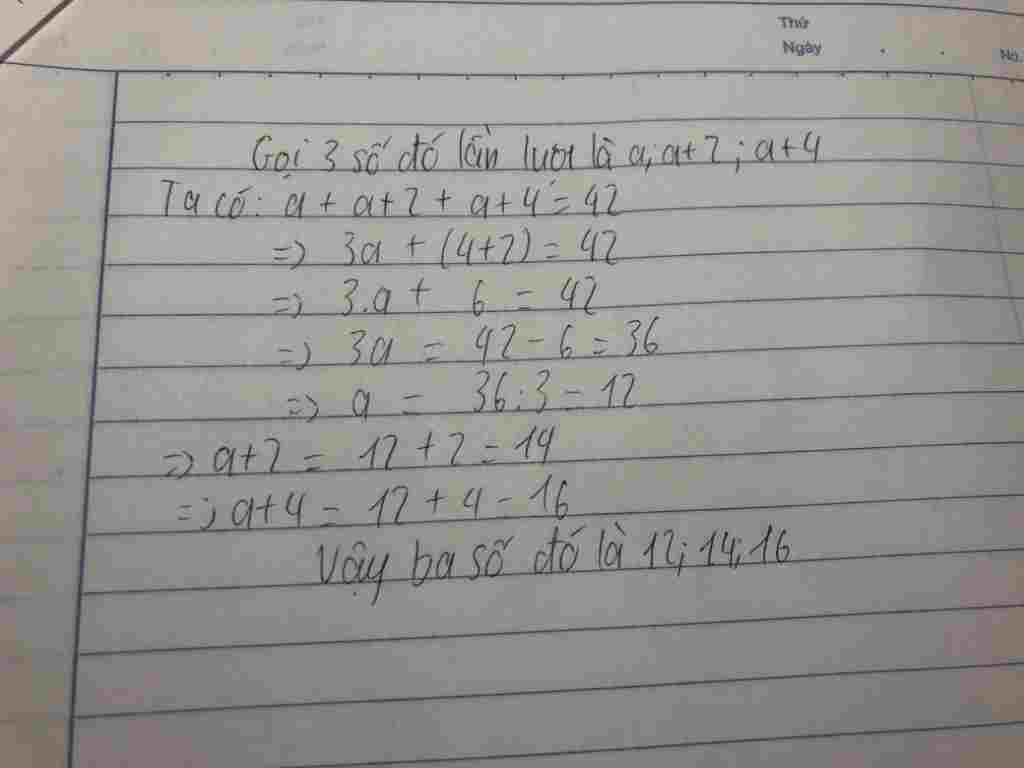 Thứ
Ngày
No.
Gọi 3 số đó lần lượt là a; a+2; a+4
Ta có: a + a+2 + a+4 = 42
=> 3a + (4+2) = 42
=> 3.a + 6 = 42
=> 3a = 42 - 6 = 36
=> a = 36:3 = 12
=> a+2 = 12 + 2 = 14
=> a+4 = 12 + 4 = 16
Vậy ba số đó là 12; 14; 16